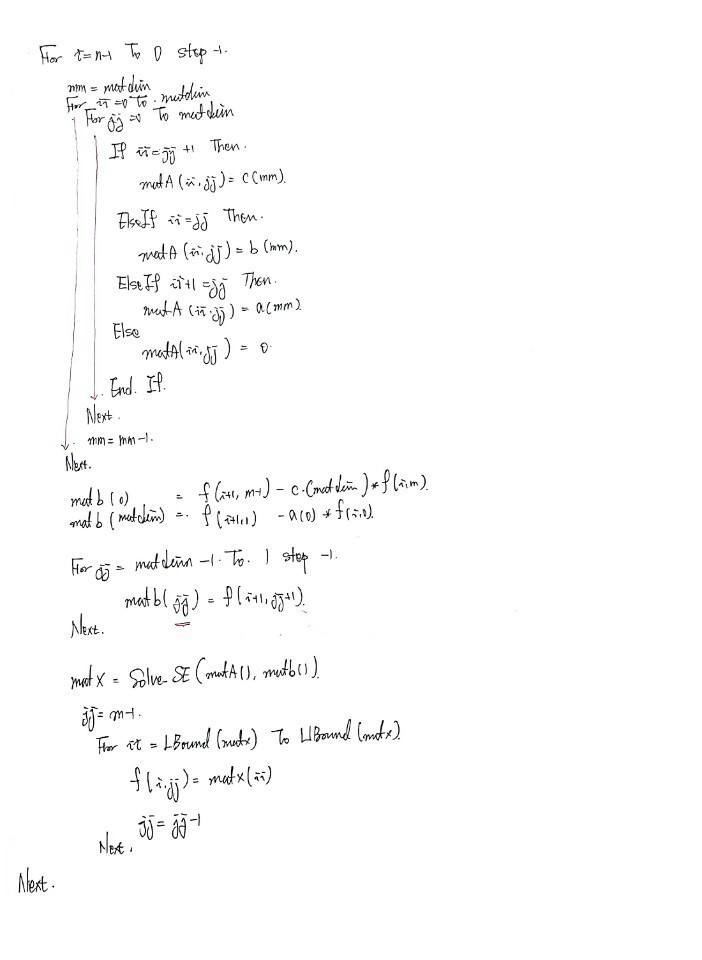 For i=n-1 To 0 step -1.
mm = matdim
For ii=0 To matdim
For jj=0 To matdim
If ii=jj+1 Then.
matA(ii,jj) = c(mm).
ElseIf ii=jj Then.
matA(ii,jj) = b(mm).
ElseIf ii+1=jj Then.
matA(ii,jj) = a(mm)
Else
matA(ii,jj) = 0
End. If.
Next.
mm = mm-1.
Next.
matb(0) = f(i+1, m-1) - c(matdim)*f(i,m).
matb(matdim) = f(i+1,1) - a(0)*f(i,0).
For jj = matdim -1. To. 1 step -1.
matb(jj) = f(i+1, jj+1).
Next.
matX = Solve_SE(matA(), matb()).
jj=m-1.
For ii = LBound(matx) To UBound(matx)
f(i,jj) = matx(ii)
jj = jj-1
Next.
Next.